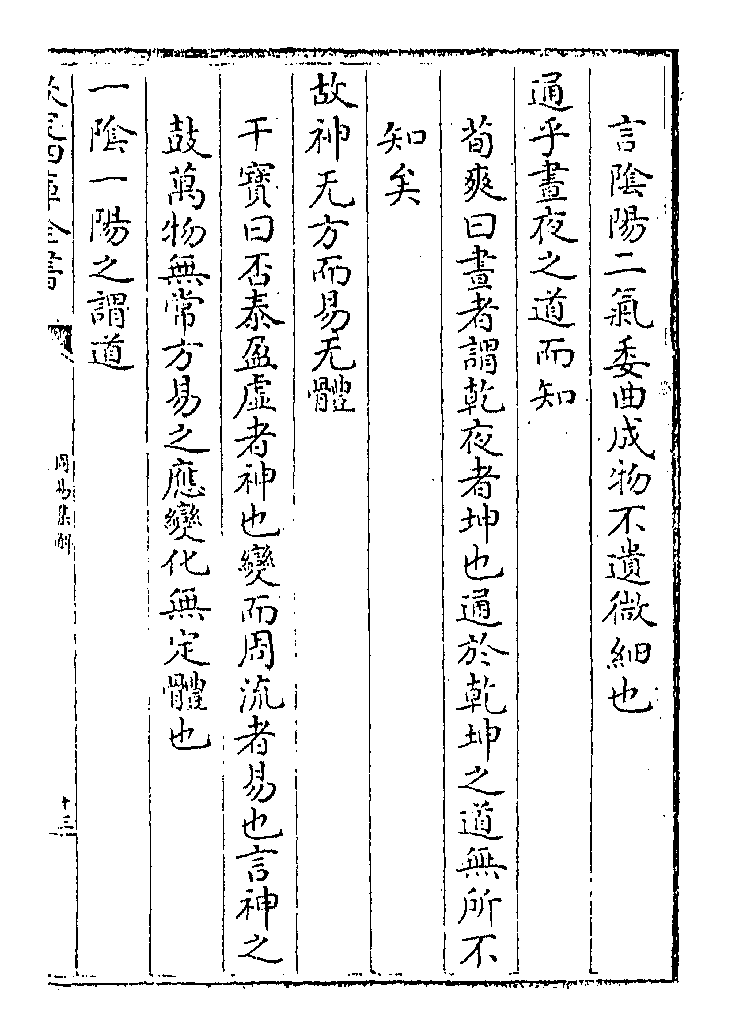 言陰陽二氣委曲成物不遺微細也
通乎晝夜之道而知
荀爽曰晝者謂乾夜者坤也通於乾坤之道無所不
知矣
故神无方而易无體
干寶曰否泰盈虛者神也變而周流者易也言神之
鼓萬物無常方易之應變化無定體也
一陰一陽之謂道
欽定四庫全書
周易集解
十三